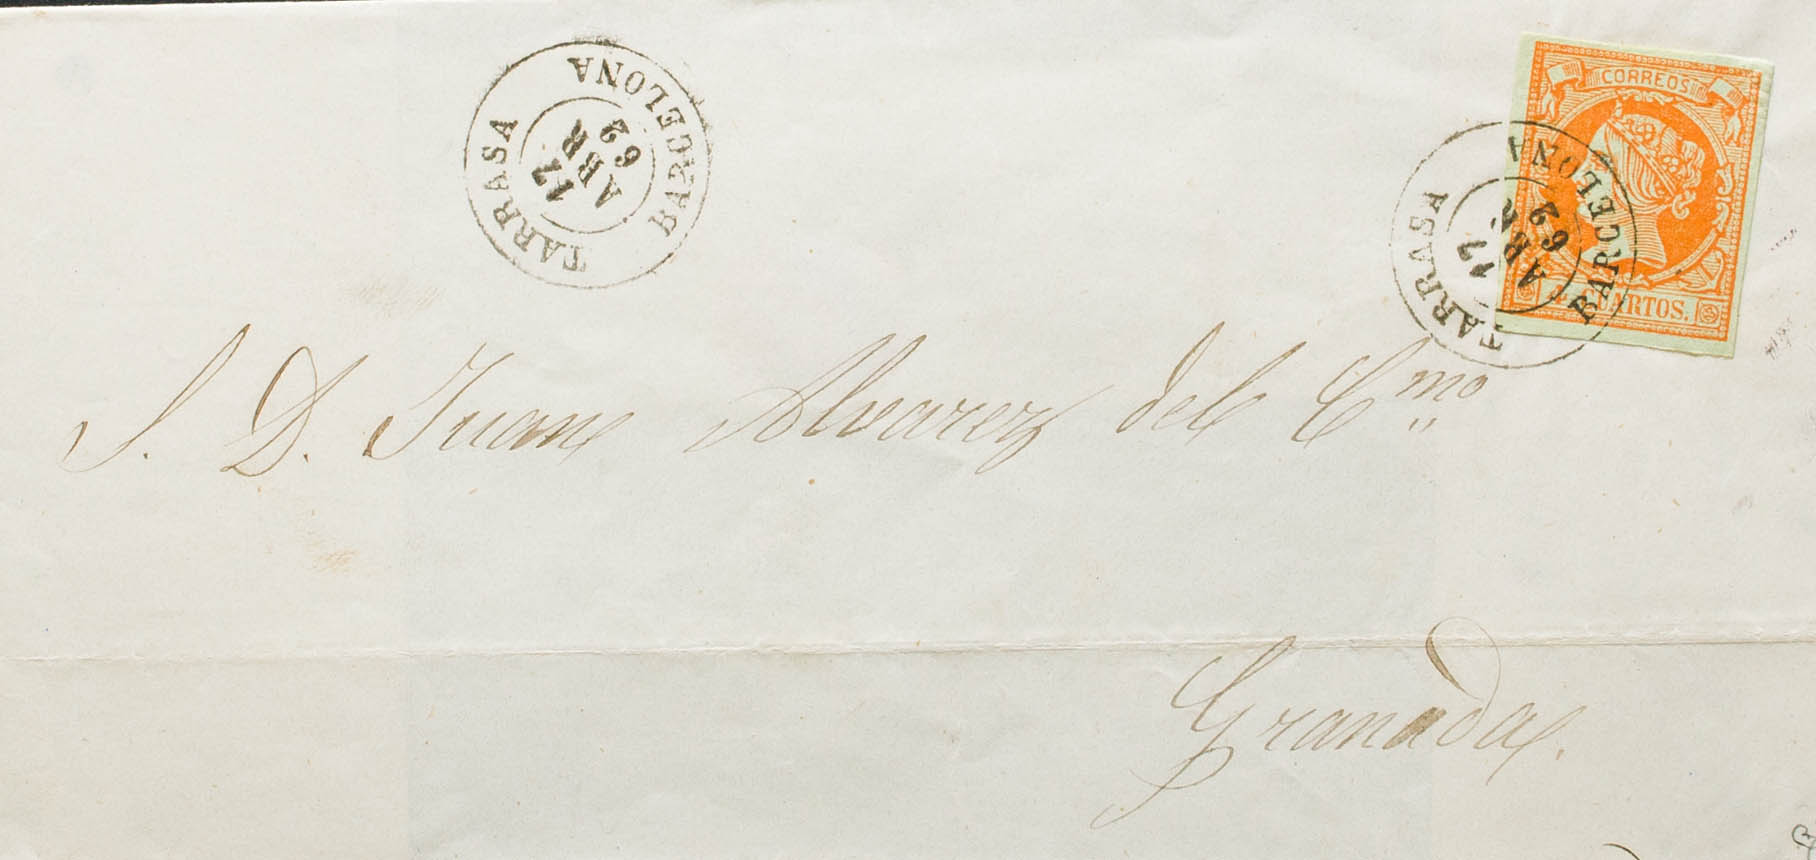 TARRASA
17
ABR
62
BARCELONA
CORREOS
CUARTOS.
TARRASA
17
ABR
62
BARCELONA
S. D. Juan Alvarez del C.mo
Granada.